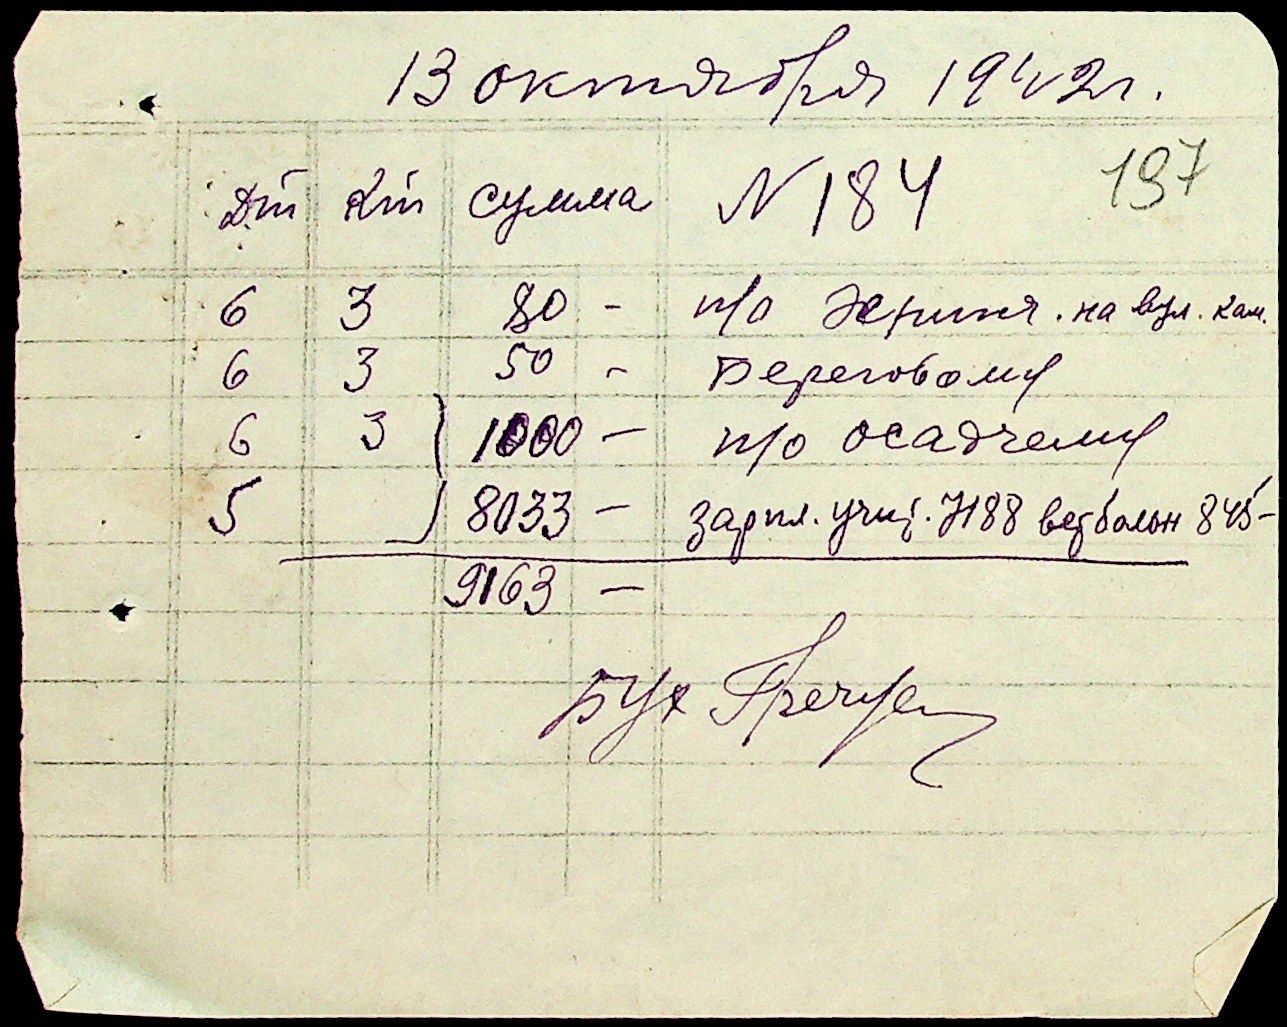 13 октября 1942г.
197
Дт Кт сумма N 184
6 3 80 - п/о на вул. кам.
6 3 50 - Береговому
6 3 1000 - п/о осадчему
5 8033 - зарпл. учит. 7188 ветбольн 845-
9163 -
Бух